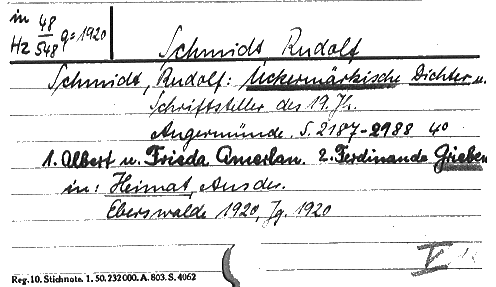 in 48
Hz 548 q=1920
Schmidt, Rudolf
Schmidt, Rudolf: Uckermärkische Dichter u.
Schriftsteller des 19. Jh.
Angermünde. S. 2187-2988 40
1. Albert u. Frieda Amerlan. 2. Ferdinande Grieben
in: Heimat, Aus der.
Eberswalde 1920, Jg. 1920
V
Reg. 10. Stichnote. 1. 50. 232000. A. 803. S. 4062